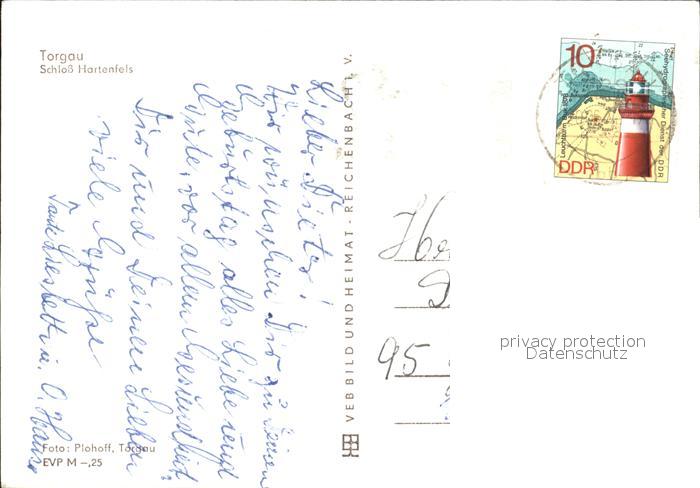 Torgau
Schloß Hartenfels
Lieber Dieter!
Wir wünschen Dir zu Deinem
Geburtstag alles Liebe und
Gute, vor allem Gesundheit.
Dir und Deinen Lieben
viele Grüße
Tante Liesbeth u. O. Hans
Foto: Plohoff, Torgau
EVP M –,25
VEB BILD UND HEIMAT · REICHENBACH i. V.
10
Leuchtturm
Seehydrographischer Dienst der DDR
DDR
95
privacy protection
Datenschutz